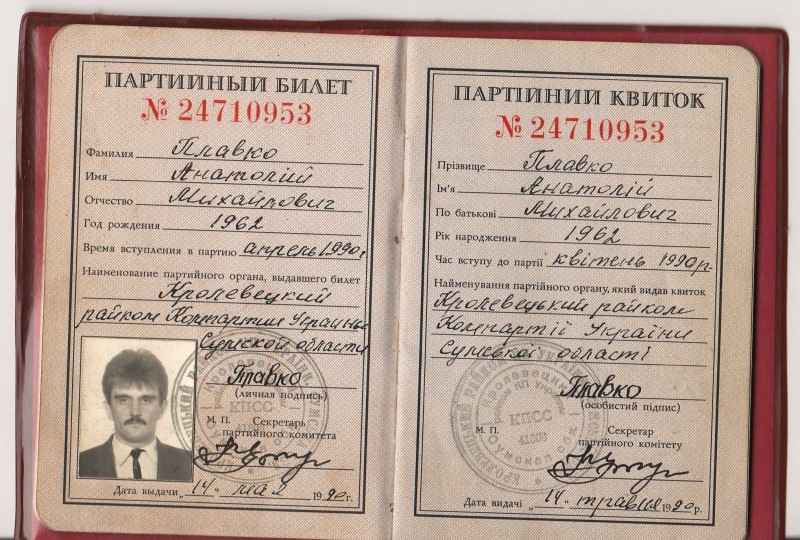 ПАРТИЙНЫЙ БИЛЕТ
№ 24710953
Фамилия Плавко
Имя Анатолий
Отчество Михайлович
Год рождения 1962
Время вступления в партию апрель 1990г
Наименование партийного органа, выдавшего билет
Кролевецкий
райком Компартии Украины
Сумской области
Плавко
(личная подпись)
М. П. Секретарь
партийного комитета
Дата выдачи „14" мая 1990 г.
ПАРТІЙНИЙ КВИТОК
№ 24710953
Прізвище Плавко
Ім'я Анатолій
По батькові Михайлович
Рік народження 1962
Час вступу до партії квітень 1990р.
Найменування партійного органу, який видав квиток
Кролевецький райком
Компартії України
Сумської області
Плавко
(особистий підпис)
М. П. Секретар
партійного комітету
Дата видачі „14" травня 1990 р.
КПСС
КПСС